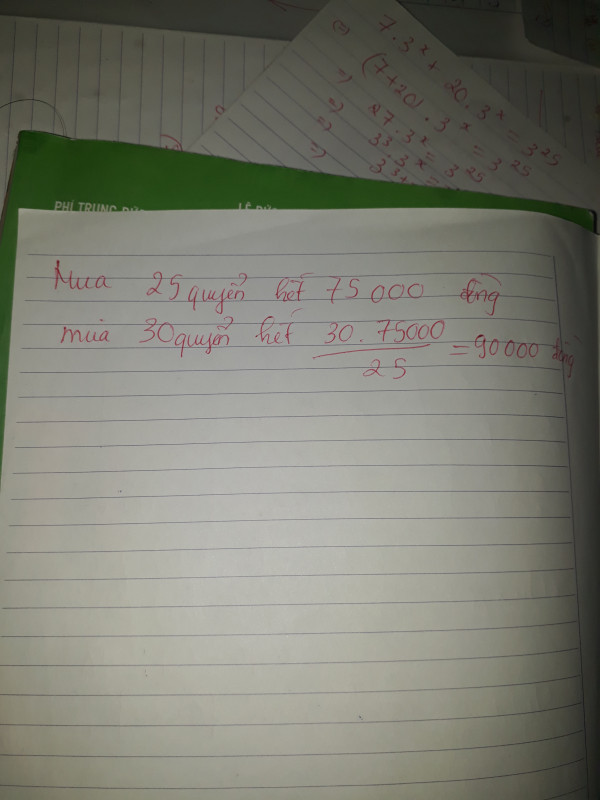 7.3ˣ + 20.3ˣ = 3²⁵
(7+20).3ˣ = 3²⁵
=> 27.3ˣ = 3²⁵
=> 3³.3ˣ =
PHÍ TRUNG
LÊ ĐỨC
Mua 25 quyển hết 75 000 đồng
mua 30 quyển hết 30.75000 / 25 = 90 000 đồng